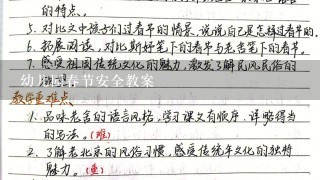 的特点。
5. 对比文中孩子们过春节的情景,说说自己是怎样过春节的。
6. 拓展阅读,对比斯妤笔下的春节与老舍笔下的春节。
7. 感受祖国传统文化的魅力,激发了解民风民俗的
幼儿园春节安全教案
教学重难点
1. 品味老舍的语言风格,学习课文有顺序、详略得当
的写法。(难)
2. 了解老北京的风俗习惯,感受传统年文化的独特
魅力。(重)